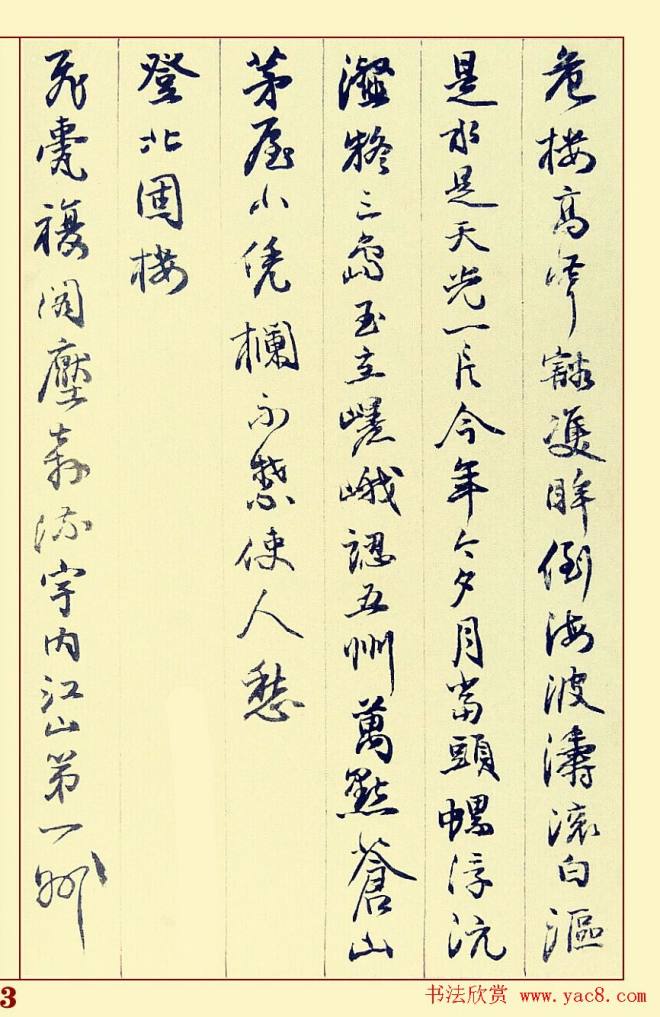 危楼高峙豁雙眸倒海波濤滚白漚
是水是天光一片今年今夕月當頭螺浮沆
瀣三島玉立峨認五州萬點蒼山
茅屋小凭欄不禁使人愁
登北固楼
飛甍複閣壓奔流宇内江山第一州
3
书法欣赏 www.yac8.com